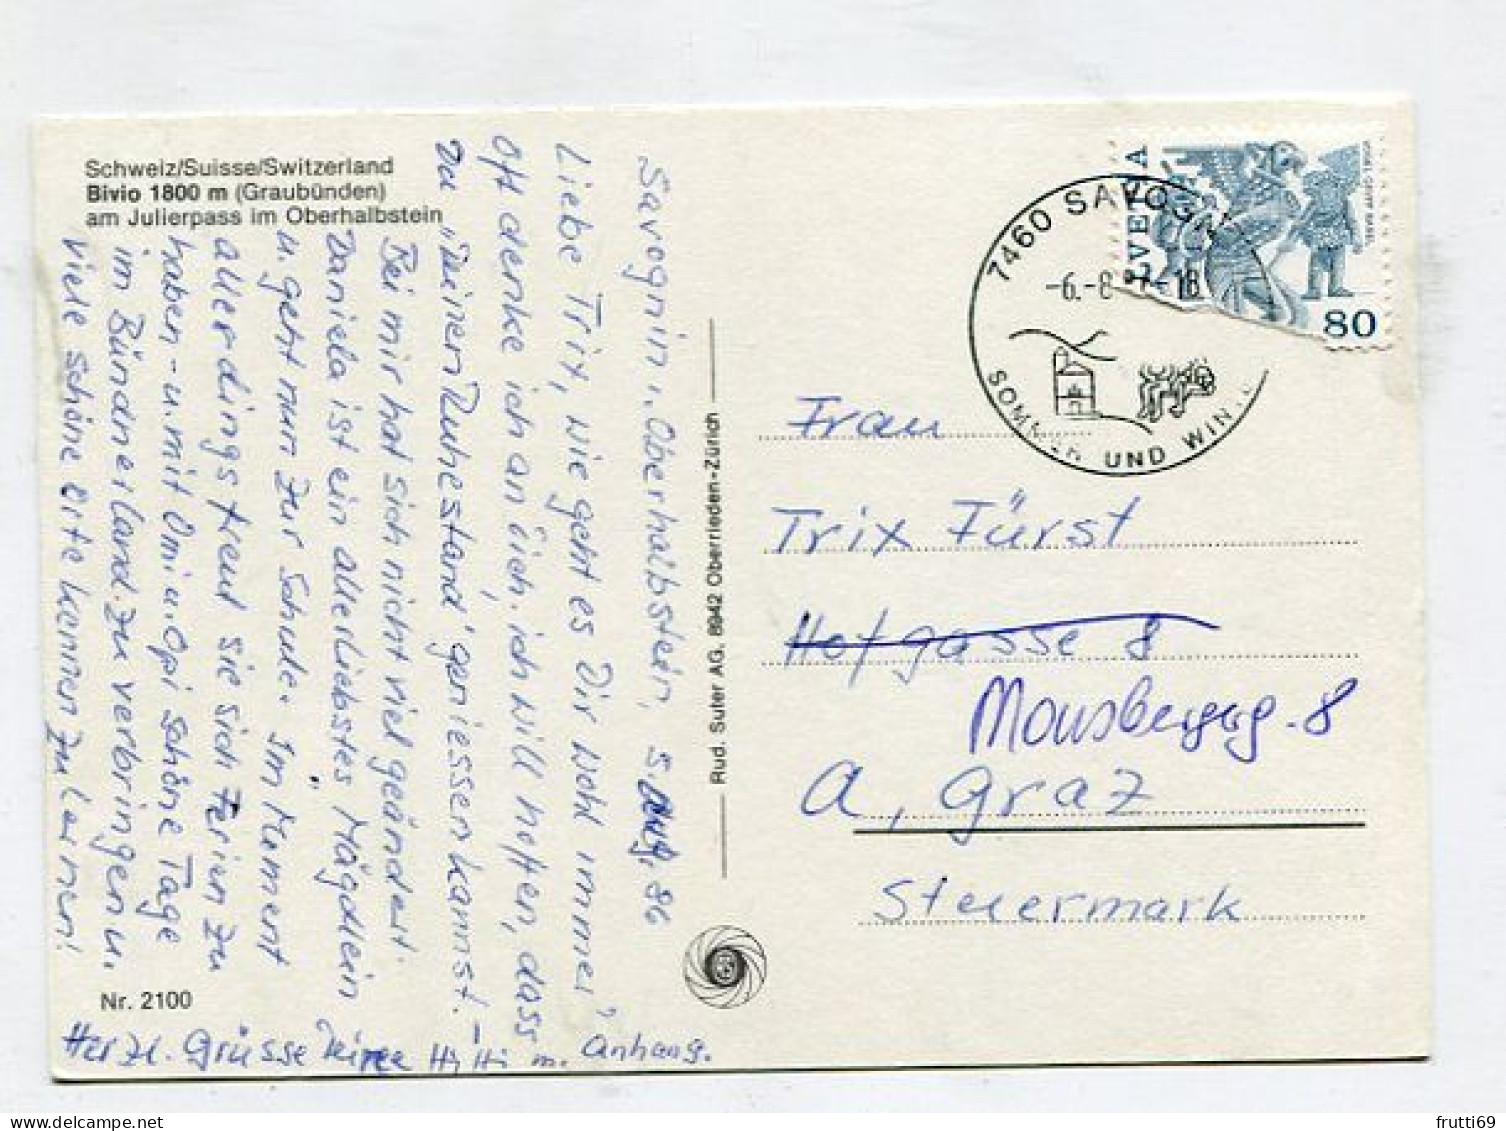 Schweiz/Suisse/Switzerland
Bivio 1800 m (Graubünden)
am Julierpass im Oberhalbstein
Savognin i. Oberhalbstein, 5. Aug. 86
Liebe Trix, wie geht es Dir wohl immer,
oft denke ich an Dich, ich will hoffen, dass
Du "Deinen Ruhestand" geniessen kannst. –
Bei mir hat sich nicht viel geändert.
Daniela ist ein allerliebstes Mägdlein
u. geht nun zur Schule. Im Moment
allerdings freut sie sich Ferien zu
haben – u. mit Omi u. Opi schöne Tage
im Bündnerland zu verbringen u.
viele schöne Orte kennen zu lernen!
Herzl. Grüsse Deine m. Anhang.
Nr. 2100
Rud. Suter AG, 8942 Oberrieden-Zürich
HELVETIA
80
7460 SAVOGNIN
-6.-8 87-18
SOMMER UND WINTER
Frau
Trix Fürst
Hofgasse 8
8
A, Graz
Steiermark
frutti69